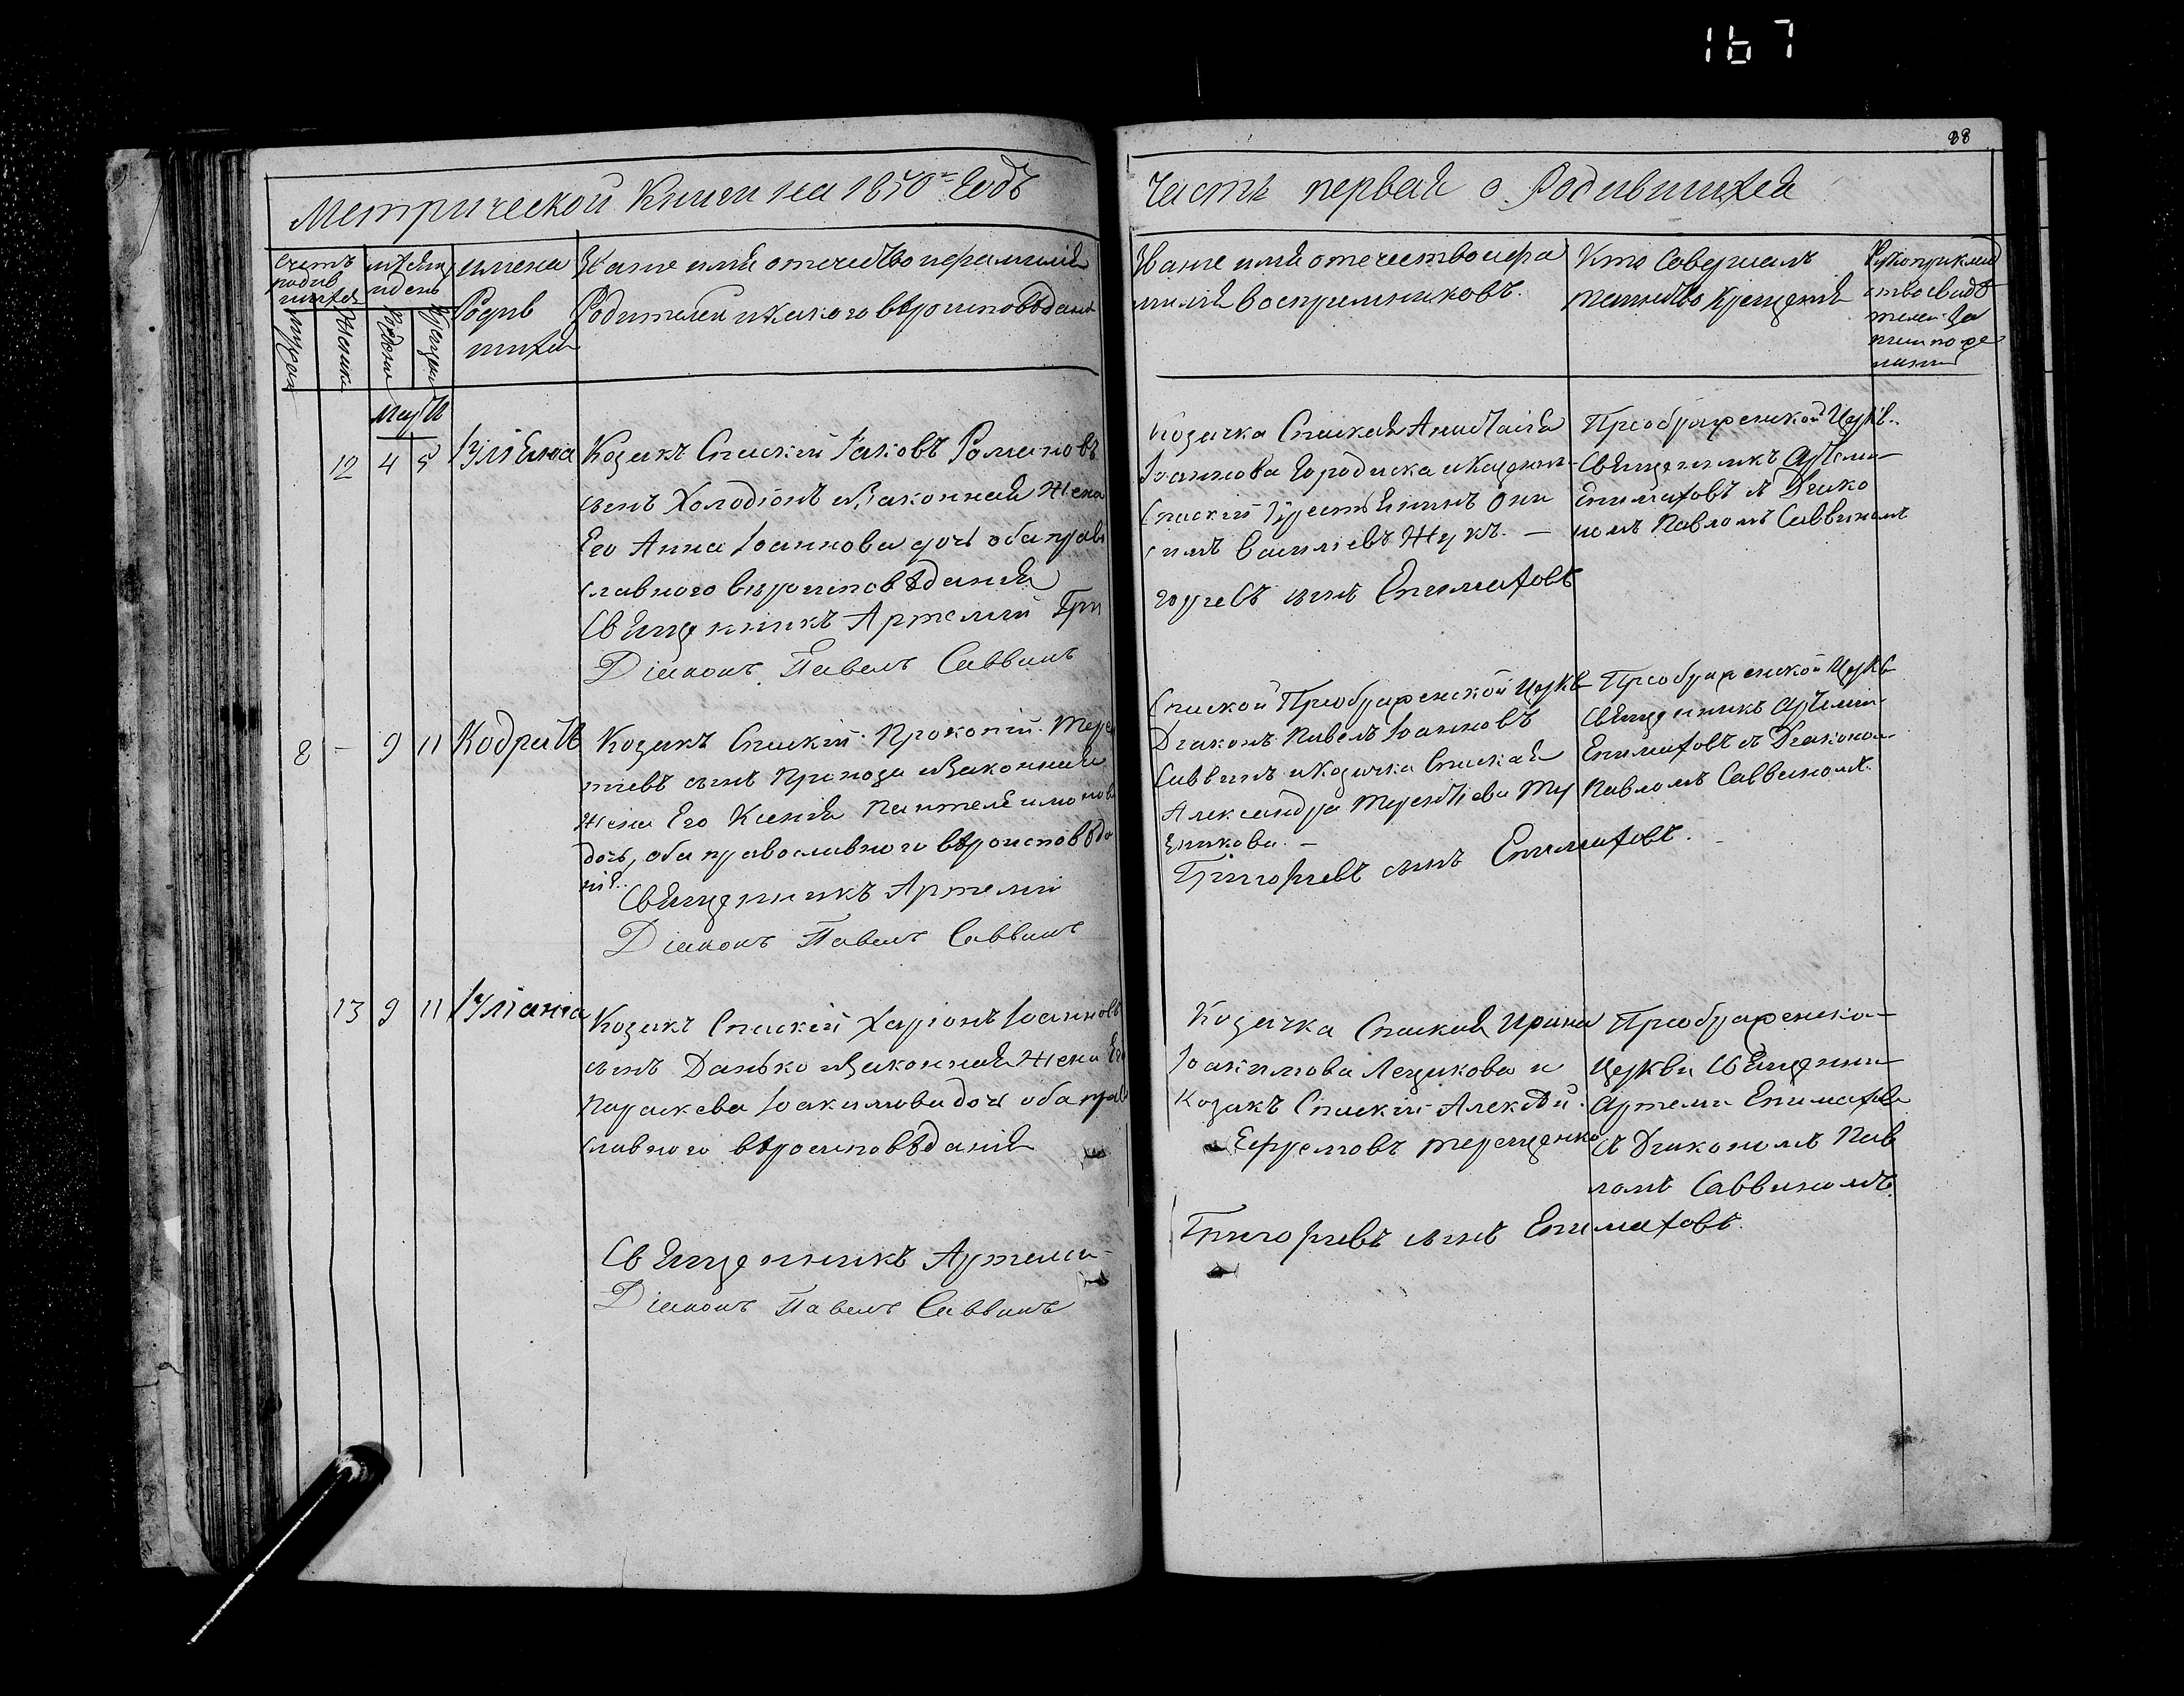 167
88
Метрической Книги на 1850й Годъ
Часть первая о Родившихся
счетъ родив шихся
мѣсяц и день
имена Родив шихся
Званіе имя отечество и фамилія
Родителей и какого вѣроисповѣданія
Званіе имя отечество и фа
милія воспріемниковъ.
Кто Совершалъ
таинство Крещенія
Рукоприклад
ство свидѣ
телей
Май
12 4 5 Іуліанна
Козакъ Спаскій Іаковъ Романовъ
сынъ Холодіонъ и Законная Жена
Его Анна Іоаннова дочь оба право
славного вѣроисповѣданія
Священникъ Артемій Гри
Діаконъ Павелъ Саввинъ
Козачка Спаская Анастасія
Іоаннова Городиска и Казенн
Спаскій Крестянинъ Они
симъ Василіевъ Жукъ. —
горіевъ сынъ Епимаховъ
Преображенской Церкв
Священникъ Артеми
Епимаховъ съ Діако
номъ Павломъ Саввиномъ
8 - 9 11 Кодратъ
Козакъ Спаскій Прокопій Терен
тіевъ сынъ Приходи и Законная
Жена Его Ксенія Пантелеимонова
дочь, оба православного вѣроисповѣда
нія.
Священникъ Артемій
Діаконъ Павелъ Саввинъ
Спаской Преображенской Церкв
Діаконъ Павелъ Іоанновъ
Саввинъ и Козачка Спаская
Александра Терентіева
Григоріевъ сынъ Епимаховъ.
Преображенской Церкв
Священникъ Артемій
Епимаховъ съ Діаконом
Павломъ Саввиномъ.
13 9 11 Іуліанія
Козакъ Спаскій Харіонъ Іоанновъ
сынъ Данько и Законная Жена Его
Параскева Іоакимова дочь оба прав
славного вѣроисповѣданія
Священникъ Артеми
Діаконъ Павелъ Саввинъ
Козачка Спаская Ирина
Іоакимова Лещикова и
Козакъ Спаскій Алексѣй
Ефремовъ Терещенко
Григоріевъ сынъ Епимаховъ.
Преображенско
Церкви Священни
Артеми Епимахов
съ Діакономъ Пав
ломъ Саввиномъ.